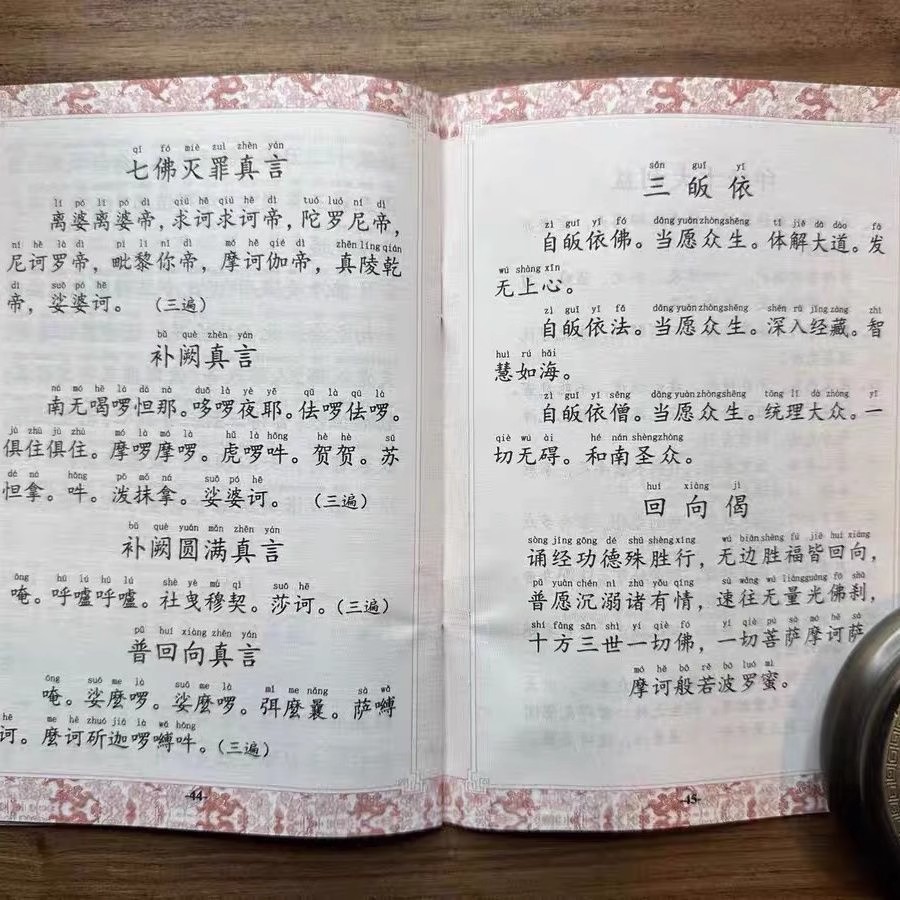 qī fó miè zuì zhēn yán
七佛灭罪真言
lí pó lí pó dì qiú hē qiú hē dì tuó luó ní dì
离婆离婆帝，求诃求诃帝，陀罗尼帝，
ní hē là dì pí lí nǐ dì mó hē qié dì zhēn líng qián
尼诃罗帝，毗黎你帝，摩诃伽帝，真陵乾
dì suō pó hē
帝，娑婆诃。（三遍）
bǔ quē zhēn yán
补阙真言
ná mó hē là dá nà duō là yè yē qū là qū là
南无喝啰怛那。哆啰夜耶。佉啰佉啰。
jù zhù jù zhù mó là mó là hǔ là hōng hè hè sū
俱住俱住。摩啰摩啰。虎啰吽。贺贺。苏
dá ná hōng pō mó ná suō pó hē
怛拿。吽。泼抹拿。娑婆诃。（三遍）
bǔ quē yuán mǎn zhēn yán
补阙圆满真言
ōng hū lú hū lú shè yè mù qì suō hē
唵。呼嚧呼嚧。社曳穆契。莎诃。（三遍）
pǔ huí xiàng zhēn yán
普回向真言
ōng suō me là suō me là mí me nǎng sà wā
唵。娑麽啰。娑麽啰。弭麽曩。萨嚩
hē me hē zhuó jiā là wā hōng
诃。麽诃斫迦啰嚩吽。（三遍）
-44-
sān guī yī
三皈依
zì guī yī fó dāng yuàn zhòng shēng tǐ jiě dà dào fā
自皈依佛。当愿众生。体解大道。发
wú shàng xīn
无上心。
zì guī yī fǎ dāng yuàn zhòng shēng shēn rù jīng zàng zhì
自皈依法。当愿众生。深入经藏。智
huì rú hǎi
慧如海。
zì guī yī sēng dāng yuàn zhòng shēng tǒng lǐ dà zhòng yī
自皈依僧。当愿众生。统理大众。一
qiè wú ài hé nán shèng zhòng
切无碍。和南圣众。
huí xiàng jì
回向偈
sòng jīng gōng dé shū shèng xíng wú biān shèng fú jiē huí xiàng
诵经功德殊胜行，无边胜福皆回向，
pǔ yuàn chén nì zhū yǒu qíng sù wǎng wú liàng guāng fó shā
普愿沉溺诸有情，速往无量光佛刹，
shí fāng sān shì yí qiè fó yí qiè pú sà mó hē sà
十方三世一切佛，一切菩萨摩诃萨，
mó hē bō rě bō luó mì
摩诃般若波罗蜜。
-45-